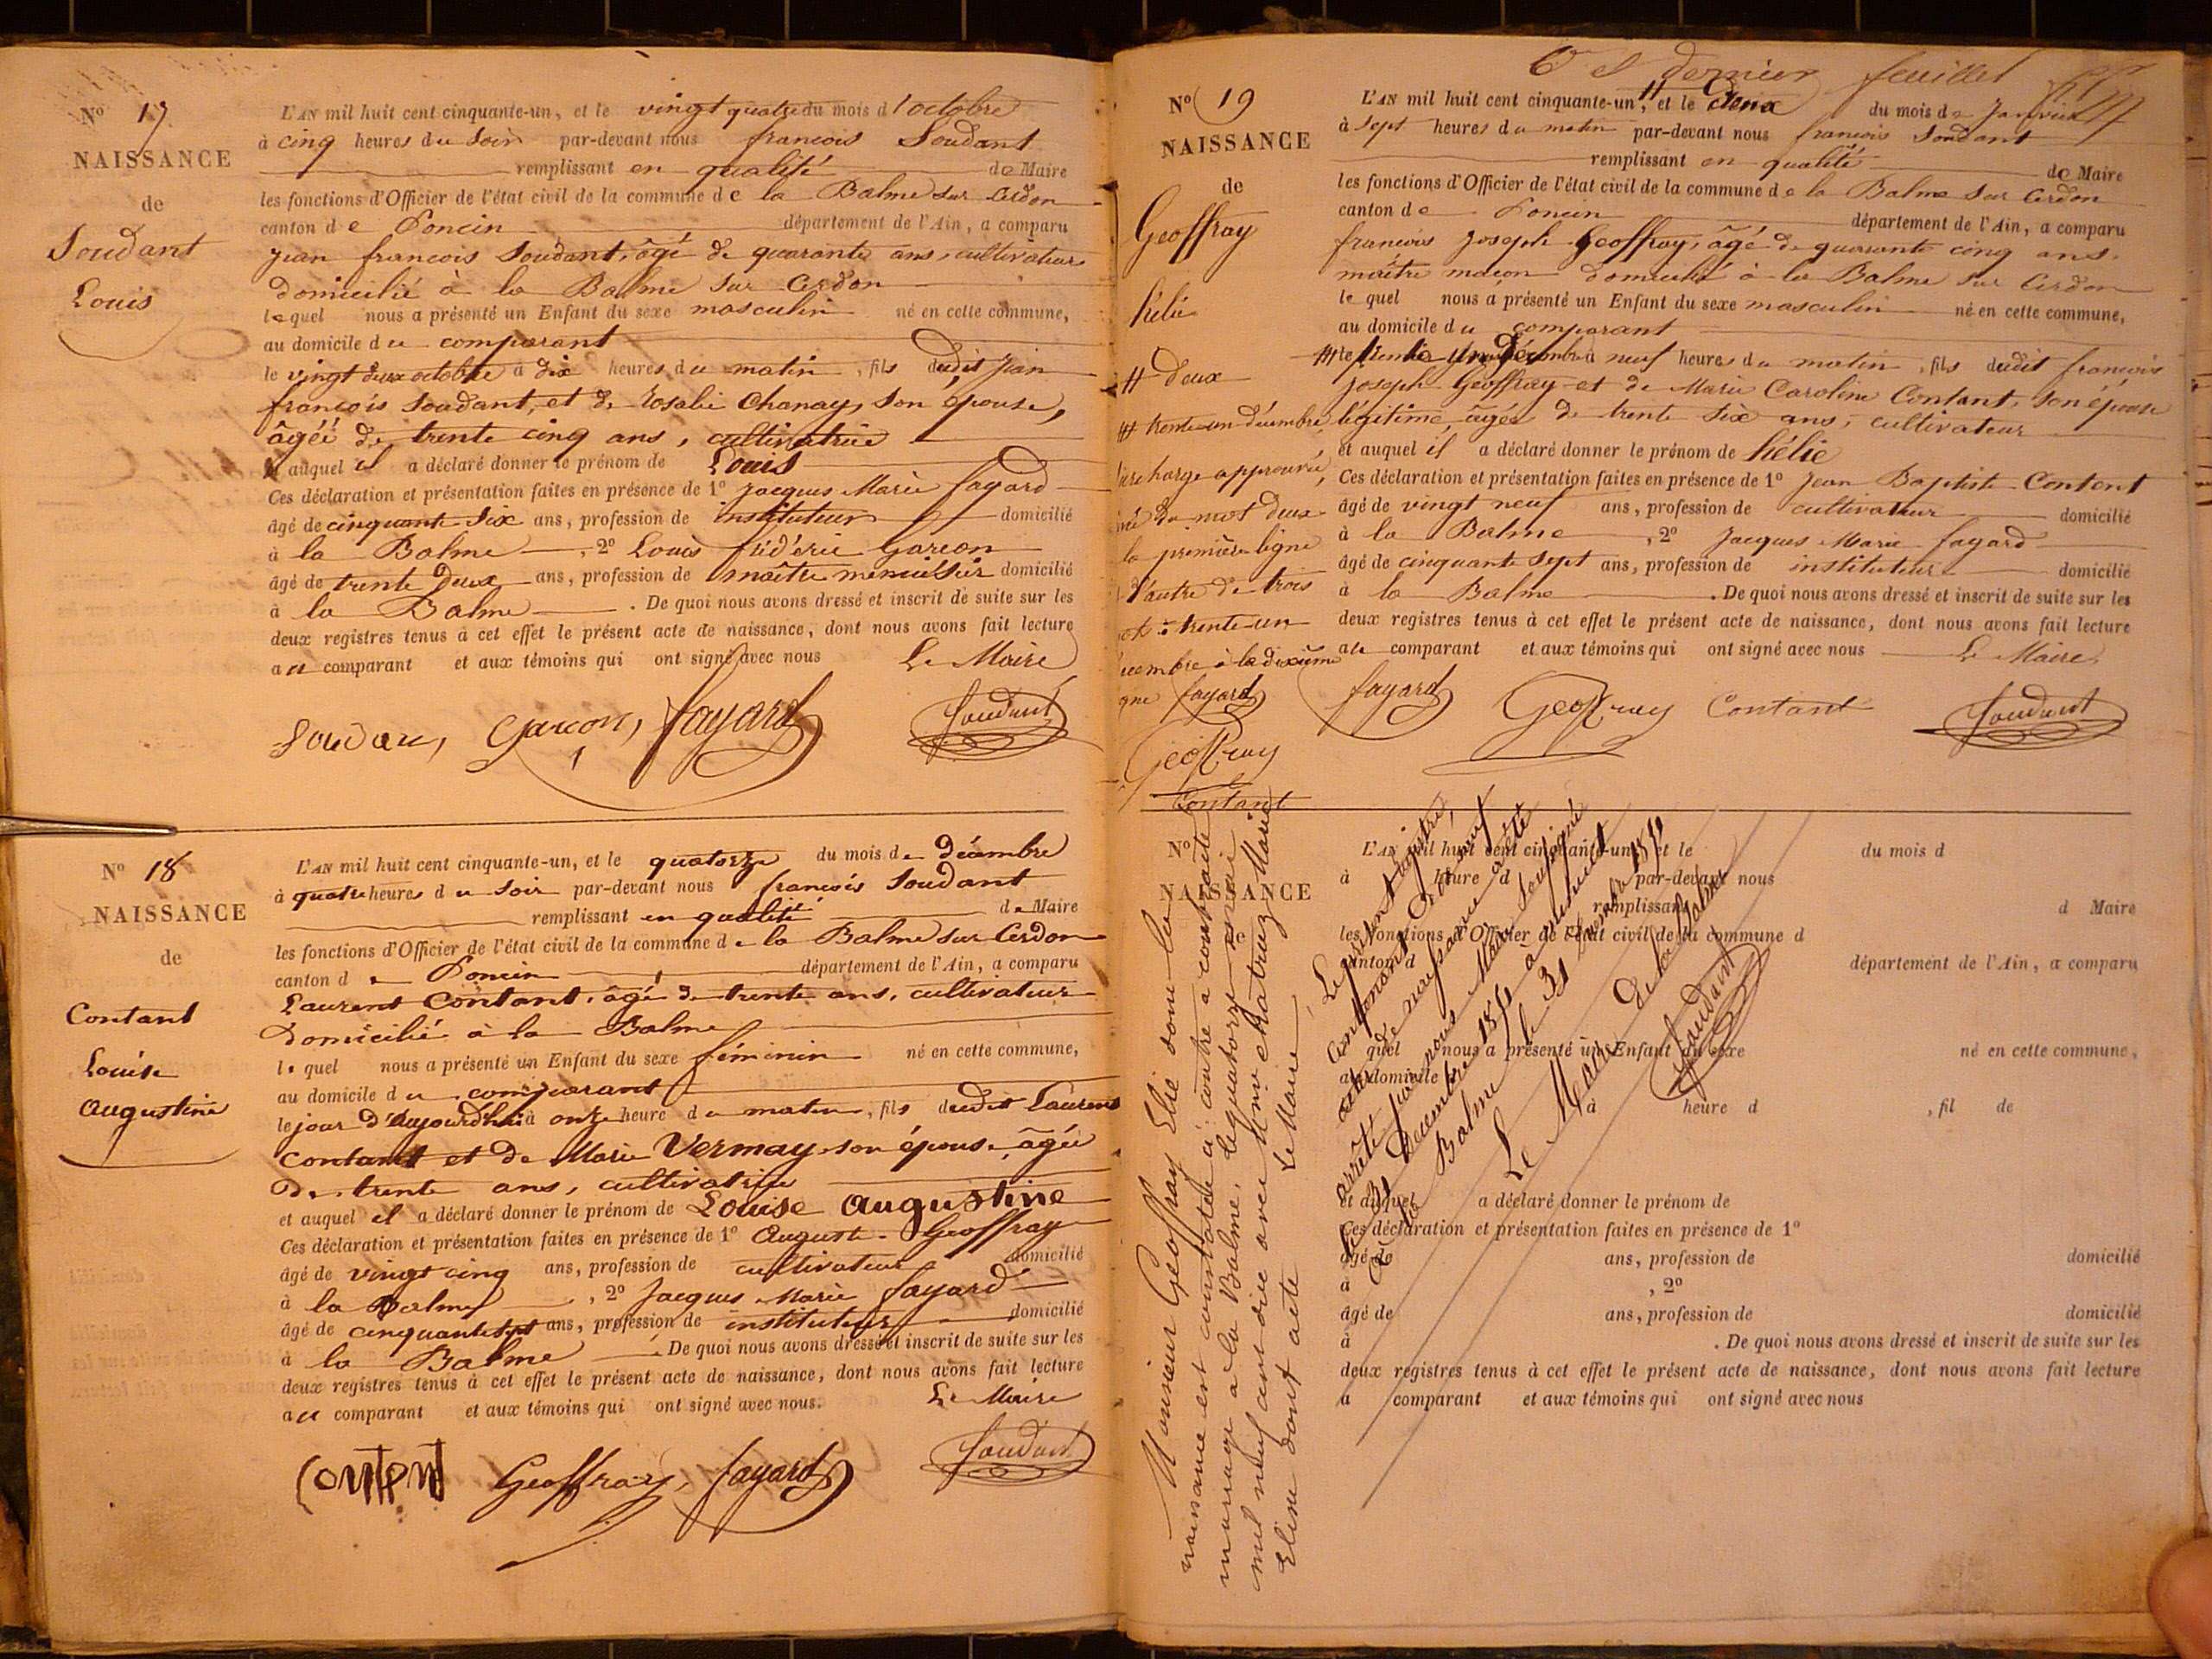 No 17
NAISSANCE
de
Soudant
Louis
L'AN mil huit cent cinquante-un, et le vingt quatre du mois d'octobre
à cinq heures du soir par-devant nous francois Soudant
remplissant en qualité de Maire
les fonctions d'Officier de l'état civil de la commune de la Balme sur Cerdon
canton de Poncin département de l'Ain, a comparu
jean francois Soudant, âgé de quarante ans, cultivateur
domicilié à la Balme sur Cerdon
lequel nous a présenté un Enfant du sexe masculin né en cette commune,
au domicile du comparant
le vingt deux octobre à dix heures du matin, fils dudit jean
françois Soudant, et de Rosalie Chanay, son épouse,
âgéé de trente cinq ans, cultivatrice
auquel il a déclaré donner le prénom de Louis
Ces déclaration et présentation faites en présence de 1° jacques Marie fayard
âgé de cinquante six ans, profession de instituteur domicilié
à la Balme, 2° Louis fréderic Garcon
âgé de trente deux ans, profession de maître menuisier domicilié
à la Balme. De quoi nous avons dressé et inscrit de suite sur les
deux registres tenus à cet effet le présent acte de naissance, dont nous avons fait lecture
au comparant et aux témoins qui ont signé avec nous Le Maire
Soudan, Garcon, fayard Soudant
No 18
NAISSANCE
de
Contant
Louise
Augustine
L'AN mil huit cent cinquante-un, et le quatorze du mois de décembre
à quatre heures du soir par-devant nous francois Soudant
remplissant en qualité de Maire
les fonctions d'Officier de l'état civil de la commune de la Balme sur Cerdon
canton de Poncin département de l'Ain, a comparu
Laurent Contant, âgé de trente ans, cultivateur
domicilié à la Balme
lequel nous a présenté un Enfant du sexe féminin né en cette commune,
au domicile du comparant
le jour d'aujourd'hui à onze heure du matin, fils dudit Laurent
Contant et de Marie Vermay son épouse, âgée
de trente ans, cultivatrice
et auquel il a déclaré donner le prénom de Louise Augustine
Ces déclaration et présentation faites en présence de 1° Auguste Geoffray
âgé de vingt cinq ans, profession de cultivateur domicilié
à la Balme, 2° Jacques Marie fayard
âgé de cinquante sept ans, profession de instituteur domicilié
à la Balme. De quoi nous avons dressé et inscrit de suite sur les
deux registres tenus à cet effet le présent acte de naissance, dont nous avons fait lecture
au comparant et aux témoins qui ont signé avec nous. Le Maire
Contant Geoffray, fayard Soudant
6e et dernier feuillet
No 19
NAISSANCE
de
Geoffray
hélie
L'AN mil huit cent cinquante-un, et le deux du mois de Janvier
à sept heures du matin par-devant nous francois Soudant
remplissant en qualité de Maire
les fonctions d'Officier de l'état civil de la commune de la Balme sur Cerdon
canton de Poncin département de l'Ain, a comparu
francois joseph Geoffray, âgé de quarante cinq ans.
maître macon domicilié à la Balme sur Cerdon
lequel nous a présenté un Enfant du sexe masculin né en cette commune,
au domicile du comparant
le trente un décembre à neuf heures du matin, fils dudit francois
joseph Geoffray et de Marie Caroline Contant, son épouse
légitime, âgée de trente six ans, cultivateur
et auquel il a déclaré donner le prénom de hélie
Ces déclaration et présentation faites en présence de 1° jean Baptiste Contant
âgé de vingt neuf ans, profession de cultivateur domicilié
à la Balme, 2° Jacques Marie fayard
âgé de cinquante sept ans, profession de instituteur domicilié
à la Balme. De quoi nous avons dressé et inscrit de suite sur les
deux registres tenus à cet effet le présent acte de naissance, dont nous avons fait lecture
au comparant et aux témoins qui ont signé avec nous Le Maire
fayard Geoffray Contant Soudant
# deux
# trente-un décembre
surcharge approuvée,
du mot deux
la première ligne
l'autre de trois
trente-un
à la dixième
fayard
Geoffray
Contant
No
NAISSANCE
Monsieur Geoffray Elie dont la
naissance est constatée ci-contre a contracté
mariage à la Balme, le quatorze
mil neuf cent dix avec Chatruz Marie
Eline dont acte Le Maire
L'AN mil huit cent cinquante-un, et le du mois d
à heure d par-devant nous
remplissant d Maire
les fonctions d'Officier de l'état civil de la commune d
canton d département de l'Ain, a comparu
quel nous a présenté un Enfant du sexe né en cette commune,
au domicile
à heure d, fil de
et auquel a déclaré donner le prénom de
Ces déclaration et présentation faites en présence de 1°
âgé de ans, profession de domicilié
à, 2°
âgé de ans, profession de domicilié
à. De quoi nous avons dressé et inscrit de suite sur les
deux registres tenus à cet effet le présent acte de naissance, dont nous avons fait lecture
a comparant et aux témoins qui ont signé avec nous
Le présent registre,
contenant dix neuf
actes de naissance a été
arrêté par nous Maire soussigné
le 31 décembre 1851 à minuit
à la Balme le 31 décembre 1851
Le Maire de la Balme
Soudant